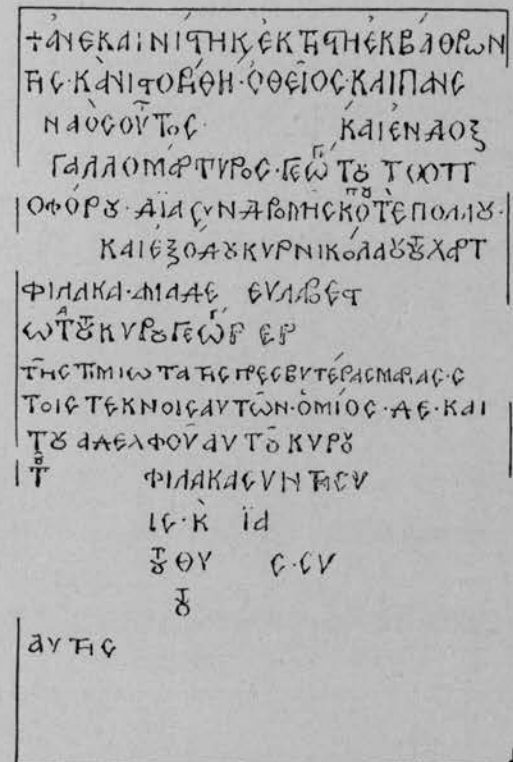 +ἀΝΕΚΑΙΝΙϹΤΗΚ ἐΚΤΙϹΤΗΕΚΒΑΘΡΩΝ
ΤΗϹ·ΚἀΝΙϹΤΟΡΙΘΗ·ΟΘΕῖΟϹ·ΚΑΙΠΑΝϹ
ΝΑὸϹΟῦΤΟϹ· ΚΑΙΕΝΔΟΞ
ΓΑΛΛΟΜΑΡΤΥΡΟϹ·ΓΕΩΓ ΤȢ ΤΟΠ
ΟΦΟΡΟΥ·ΔΙΑϹΥΝΔΡΟΜΗϹΚΟΤΕΠΟΛΛΟΥ·
ΚΑΙΕΞΟΔȢΚΥΡΝΙΚΟΛΑΟΥΤȢΧΑΡΤ
ΦΙΛΑΚΑ·ΑΜΑΔΕ ΕΥΛΑΒΕϹΤ
ΩΤȢΚΥΡȢΓΕΩΡΓ ΕΡ
ΤΗϹΤΙΜΙΩΤΑΤΗϹΠΡΕϹΒΥΤΕΡΑϹΜΑΡΙΑϹ·Ϲ
ΤΟΙϹΤΕΚΝΟΙϹΑΥΤῶΝ·ὁΜΙΟϹ·ΔΕ·ΚΑΙ
ΤȢΑΔΕΛΦΟΥΑΥΤȢΚΥΡȢ
ΤȢ ΦΙΛΑΚΑϹΥΝΤΗϹΥ
ΙϹ·Κ̀ ΪΑ
ΤȢΘΥ Ϲ·ϹΥ
ΤȢ
ΑΥΤΗϹ